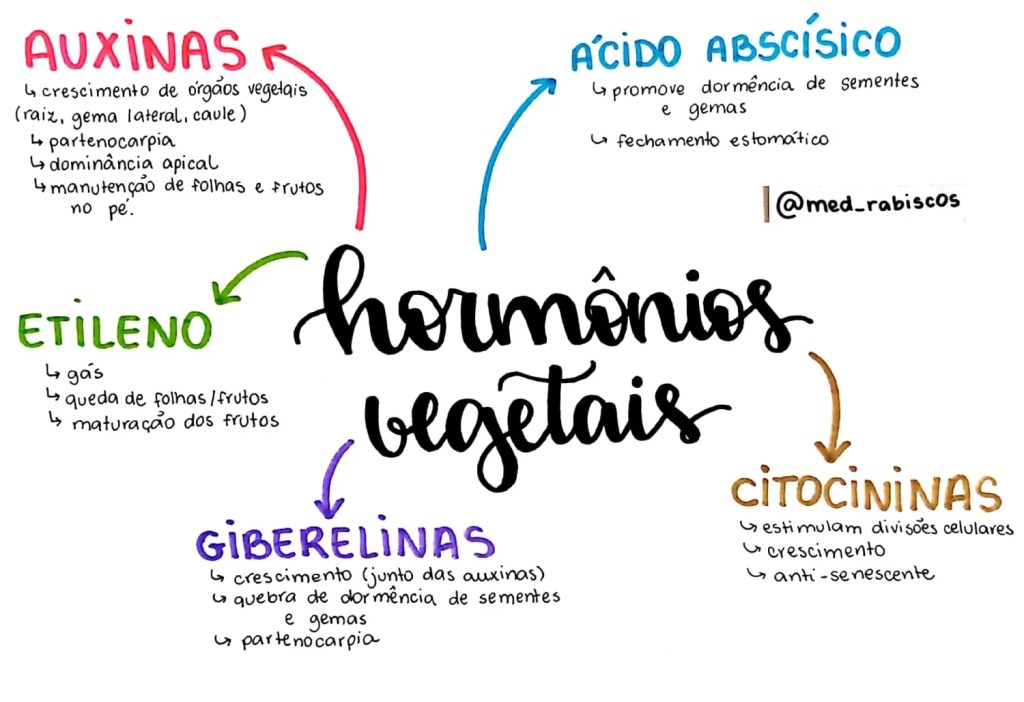 AUXINAS
↳ crescimento de órgãos vegetais
(raiz, gema lateral, caule)
↳ partenocarpia
↳ dominância apical
↳ manutenção de folhas e frutos
no pé.
ÁCIDO ABSCÍSICO
↳ promove dormência de sementes
e gemas
↳ fechamento estomático
@med_rabiscos
hormônios
vegetais
ETILENO
↳ gás
↳ queda de folhas/frutos
↳ maturação dos frutos
GIBERELINAS
↳ crescimento (junto das auxinas)
↳ quebra de dormência de sementes
e gemas
↳ partenocarpia
CITOCININAS
↳ estimulam divisões celulares
↳ crescimento
↳ anti-senescente